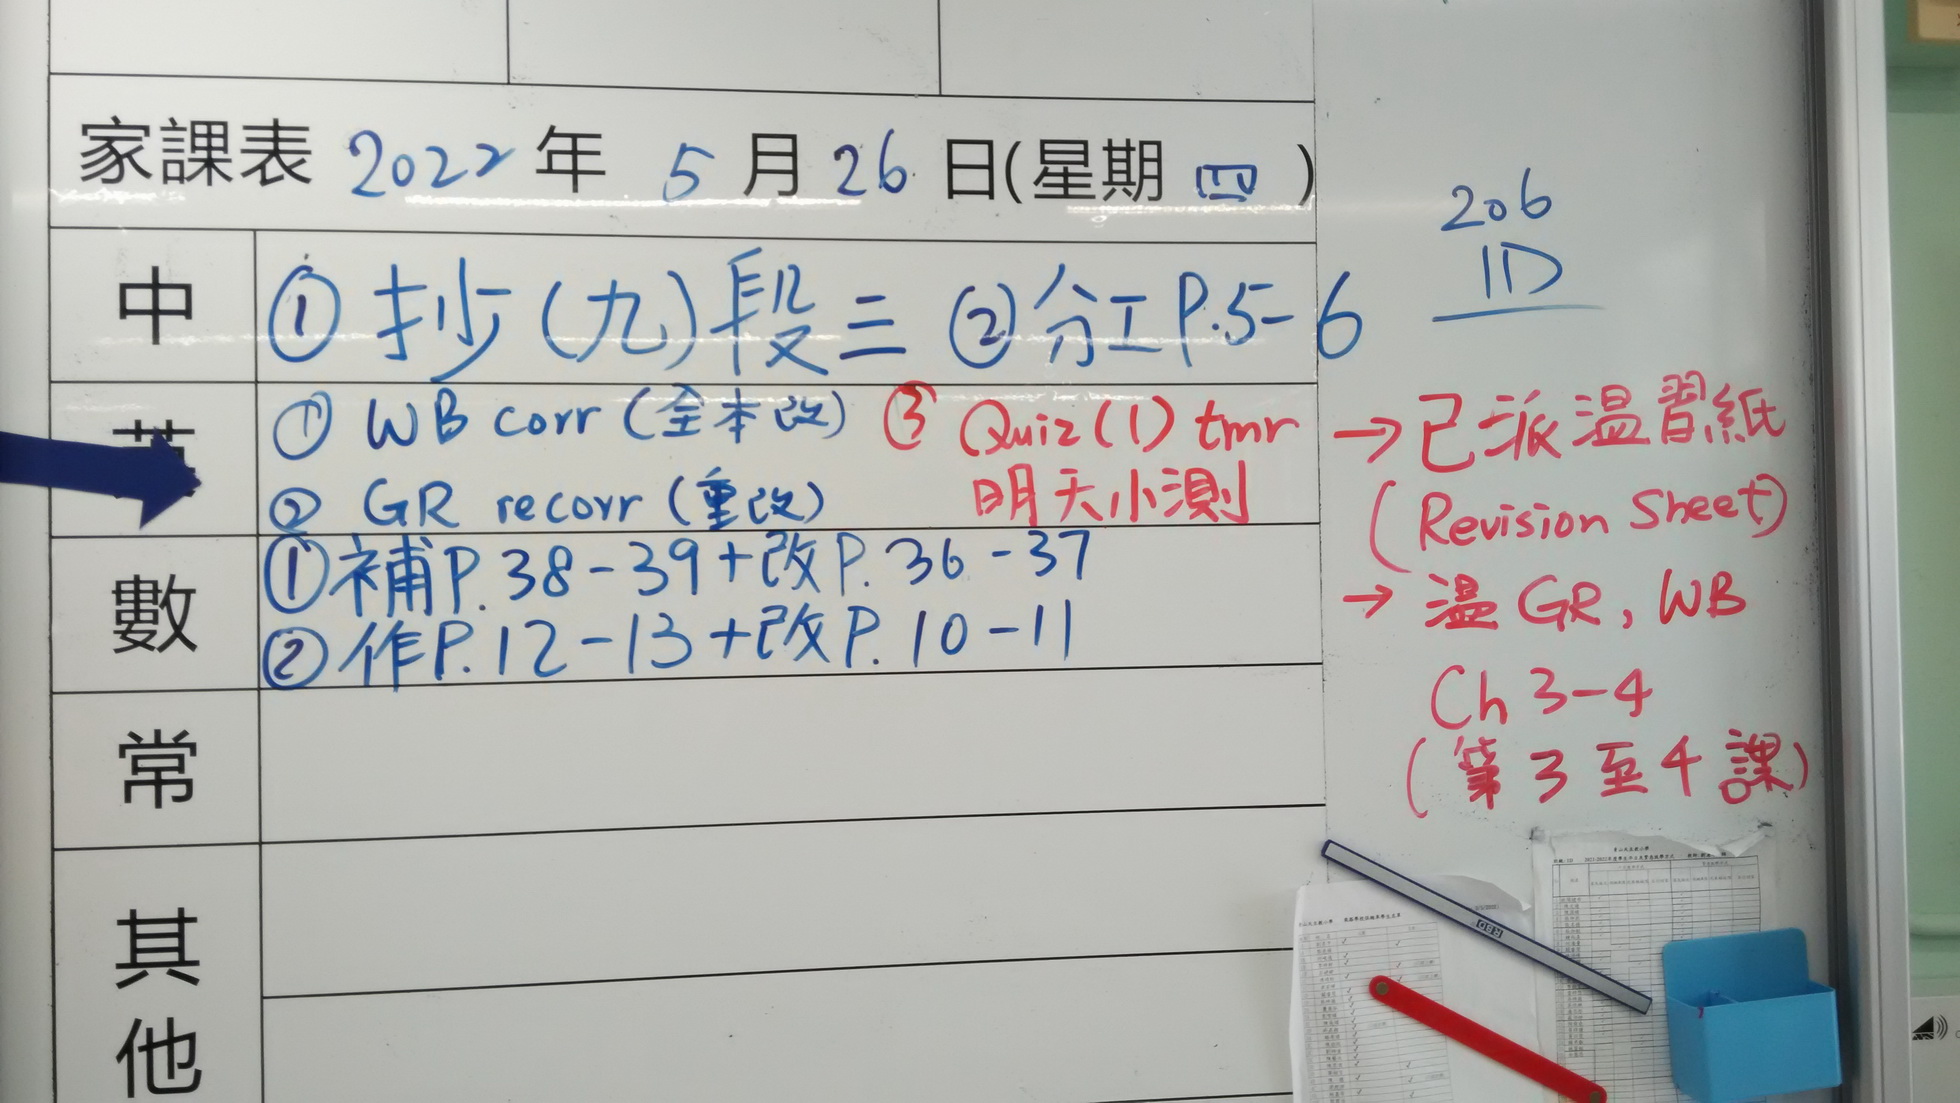 家課表 2022 年 5 月 26 日(星期 四 )
206
1D
中 ① 抄(九)段三 ② 分工 P.5-6
英 ① WB corr (全本改) ③ Quiz(1) tmr → 已派溫習紙
② GR recorr (重改) 明天小測 (Revision Sheet)
數 ① 補P.38-39+改P.36-37 → 溫 GR, WB
② 作P.12-13+改P.10-11 Ch 3-4
常 (第3至4課)
其他